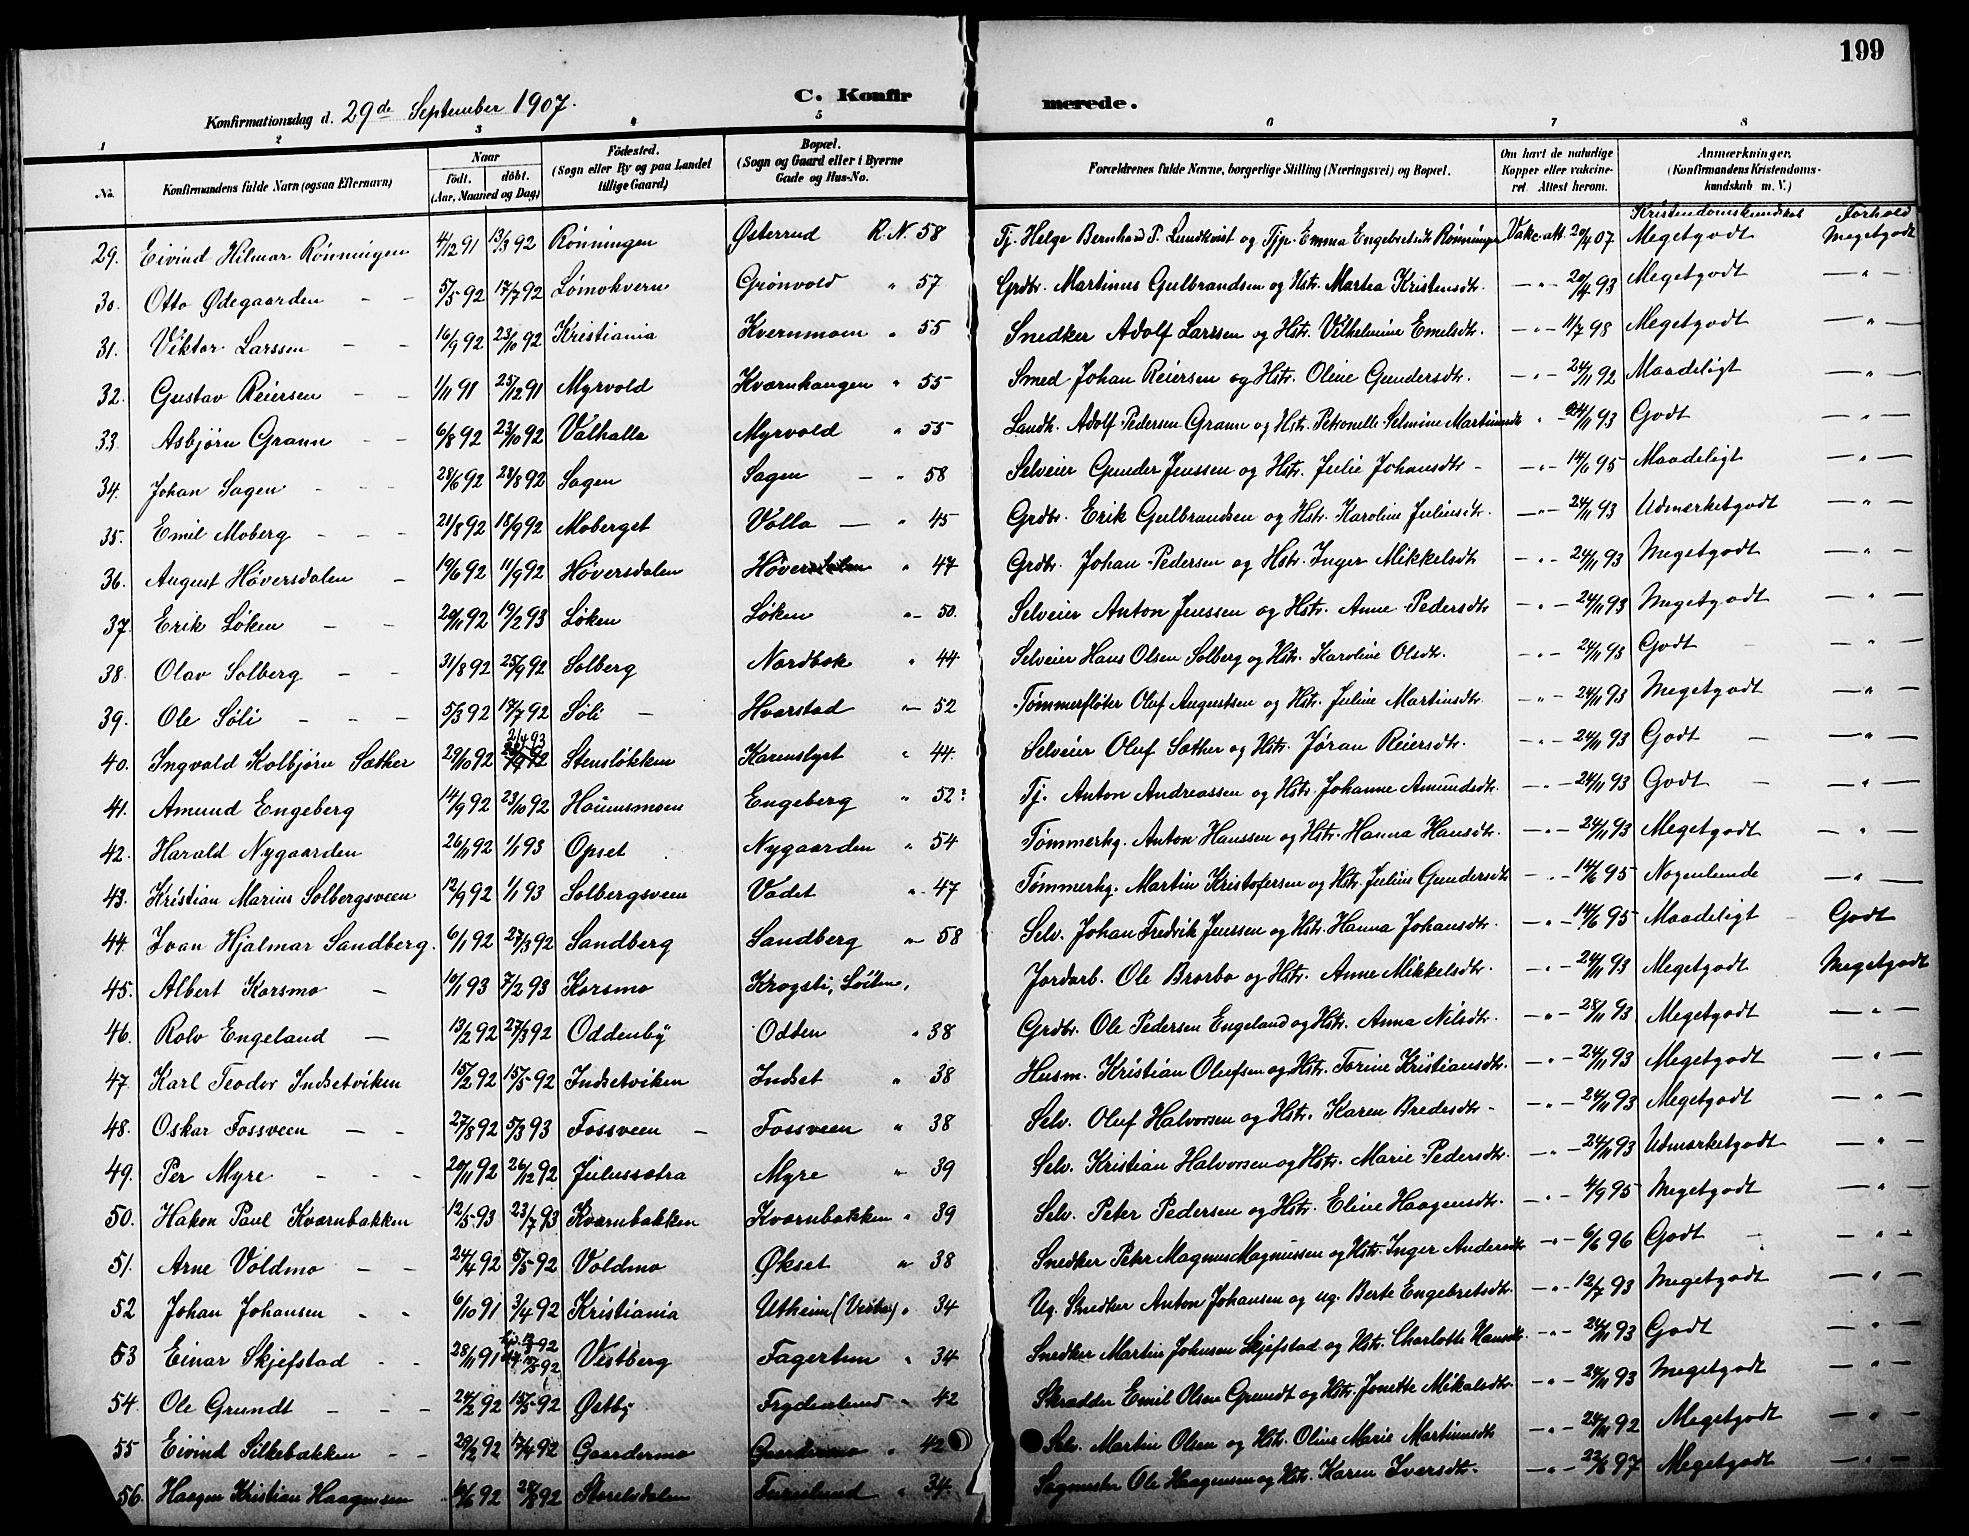 199
Konfirmationsdag d. 29de September 1907.
C. Konfirmerede.
1 2 3 4 5 6 7 8
No. Konfirmandens fulde Navn (ogsaa Efternavn) Naar födt. döbt. (Aar, Maaned og Dag) Födested. (Sogn eller By og paa Landet tillige Gaard) Bopæl. (Sogn og Gaard eller i Byerne Gade og Hus-No. Forældrenes fulde Navne, borgerlige Stilling (Næringsvei) og Bopæl. Om havt de naturlige Kopper eller vakcineret. Attest herom. Anmærkninger. (Konfirmandens Kristendomskundskab m. V.)
Kristendomskundskab Forhold
29. Eivind Hilmar Rønningen 4/12 91 13/3 92 Rønningen Østerrud R.N. 58 Tj. Helge Bernhard P. Lundkvist og Tjp. Emma Engebretsdtr Rønningen Vakc. att. 20/4 07 Megetgodt Megetgodt
30. Otto Ødegaarden - - 5/5 92 17/7 92 Lömokvern Grönvold " 57 Grdbr. Martinus Gulbrandsen og Hstr. Martea Kristensdtr. - " - 20/4 93 Megetgodt - " -
31. Viktor Larssen - - 16/9 92 23/10 92 Kristiania Kvernmoen " 55 Snedker Adolf Larssen og Hstr. Vilhelmine Emelsdtr. - " - 11/7 98 Megetgodt - " -
32. Gustav Reiersen - - 1/11 91 25/12 91 Myrvold Kværnhaugen " 55 Smed Johan Reiersen og Hstr. Oline Gundersdtr. - " - 24/11 92 Maadeligt - " -
33. Asbjørn Grann - - 6/8 92 23/10 92 Valhalla Myrvold " 55 Landh. Adolf Pedersen Grann og Hstr. Petronelle Selmine Martinsdtr " - 24/11 93 Godt - " -
34. Johan Sagen - - - 28/6 92 28/8 92 Sagen Sagen - " 58 Selveier Gunder Jenssen og Hstr. Julie Johansdtr - - " - 14/6 95 Maadeligt - " -
35. Emil Moberg - - - 21/8 92 18/9 92 Moberget Volla - " 45 Grdbr. Erik Gulbrandsen og Hstr. Karoline Juliusdtr. - " - 24/11 93 Udmerketgodt - " -
36. August Höversdalen - 19/6 92 11/9 92 Höversdalen Höversdalen " 47 Grdbr. Johan Pedersen og Hstr. Inger Mikkelsdtr - " - 24/11 93 Megetgodt - " -
37. Erik Löken - - 20/11 92 19/2 93 Löken Löken " 50. Selveier Anton Jenssen og Hstr. Anne Pedersdtr - " - 24/11 93 Megetgodt - " -
38. Olav Solberg - - 31/8 92 25/9 92 Solberg Nordbok " 44 Selveier Hans Olsen Solberg og Hstr. Karoline Olsdtr. - " - 24/11 93 Godt - - " -
39. Ole Söli - - - 5/3 92 17/7 92 Söli - Hvarstad " 52 Tømmerfløter Oluf Augustsen og Hstr. Juline Martinsdtr. - " - 24/11 93 Megetgodt - " -
40. Ingvald Kolbjørn Sæther 29/10 92 2/4 93 Stenslökken Karenslyst " 44. Selveier Oluf Sæther og Hstr. Jøran Reiersdtr. - " - 24/11 93 Godt - - " -
41. Amund Engeberg 14/9 92 23/10 92 Houmsmoen Engeberg " 52? Tj. Anton Andreassen og Hstr. Johanne Amundsdtr. - " - 24/11 93 Godt - - " -
42. Harald Nygaarden 26/11 92 1/1 93 Opset Nygaarden " 54 Tømmerhg. Anton Hanssen og Hstr. Hanna Hansdtr. - " - 24/11 93 Megetgodt - " -
43. Kristian Marius Solbergsveen 12/9 92 1/1 93 Solbergsveen Vadet " 47 Tømmerhg. Martin Kristofersen og Hstr. Juline Gundersdtr - " - 14/6 95 Nogenlunde - " -
44. Ivan Hjalmar Sandberg. 6/1 92 27/3 92 Sandberg Sandberg " 58 Selv. Johan Fredrik Jenssen og Hstr. Hanna Johansdtr. - " - 14/6 95 Maadeligt - Godt
45. Albert Korsmo - 10/1 93 7/2 93 Korsmo Krogsti, Löiten, Jordarb. Ole Brorbo og Hstr. Anne Mikkelsdtr. - " - 24/11 93 Megetgodt Megetgodt
46. Rolv Engeland - 13/2 92 27/3 92 Oddenby Odden " 38 Grdbr. Ole Pedersen Engeland og Hstr. Anna Nilsdtr. - " - 28/11 93 Megetgodt - " -
47. Karl Teodor Indsetviken 15/2 92 15/5 92 Indsetviken Indset " 38 Husm. Kristian Olufsen og Hstr. Torine Kristiansdtr. - " - 24/11 93 Megetgodt - " -
48. Oskar Fossveen - - 27/8 92 5/3 93 Fossveen - Fossveen " 38 Selv. Oluf Halvorsen og Hstr. Karen Bredesdtr - - " - 24/11 93 Megetgodt - " -
49. Per Myre - - - 20/11 92 26/12 92 Julussætra Myre " 39 Selv. Kristian Halvorsen og Hstr. Marie Pedersdtr. - " - 24/11 93 Udmærketgodt - " -
50. Hakon Paul Kværnbakken 12/5 93 23/7 93 Kværnbakken Kværnbakken " 39 Selv. Peter Pedersen og Hstr. Eline Haagensdtr. - " - 4/9 95 Megetgodt - " -
51. Arne Voldmo - - 24/4 92 5/5 92 Voldmo Økset " 38 Snedker Petter Magnus Magnussen og Hstr. Inger Andersdtr - " - 6/6 96 Godt - - " -
52 Johan Johansen - - 6/10 91 3/4 92 Kristiania Utheim " 34 Ug. Snedker Anton Johansen og ug. Berte Engebretsdtr. - " - 12/7 93 Megetgodt - " -
53 Einar Skjefstad - - 28/11 91 Vestberg Fagertun " 34 Snedker Martin Johnsen Skjefstad og Hstr. Charlotte Hansdtr. - " - 24/11 93 Godt - " -
54. Ole Grundt - - - 24/2 92 15/5 92 Østby Frydenlund " 42 Skrædder Emil Olsen Grundt og Hstr. Jonette Mikalsdtr. - " - 24/11 93 Megetgodt - " -
55 Eivind Silkebakken - - 29/2 92 17/4 92 Gaardermo Gaardermo " 42 Selv. Martin Olsen og Hstr. Oline Marie Martinusdtr - " - 24/11 92 Megetgodt - " -
56. Haagen Kristian Haagensen 92 92 Storelvdalen Furulund " 34. Sagmester Ole Haagensen og Hstr. Karen Iversdtr. - " - 22/6 97 Megetgodt - " -